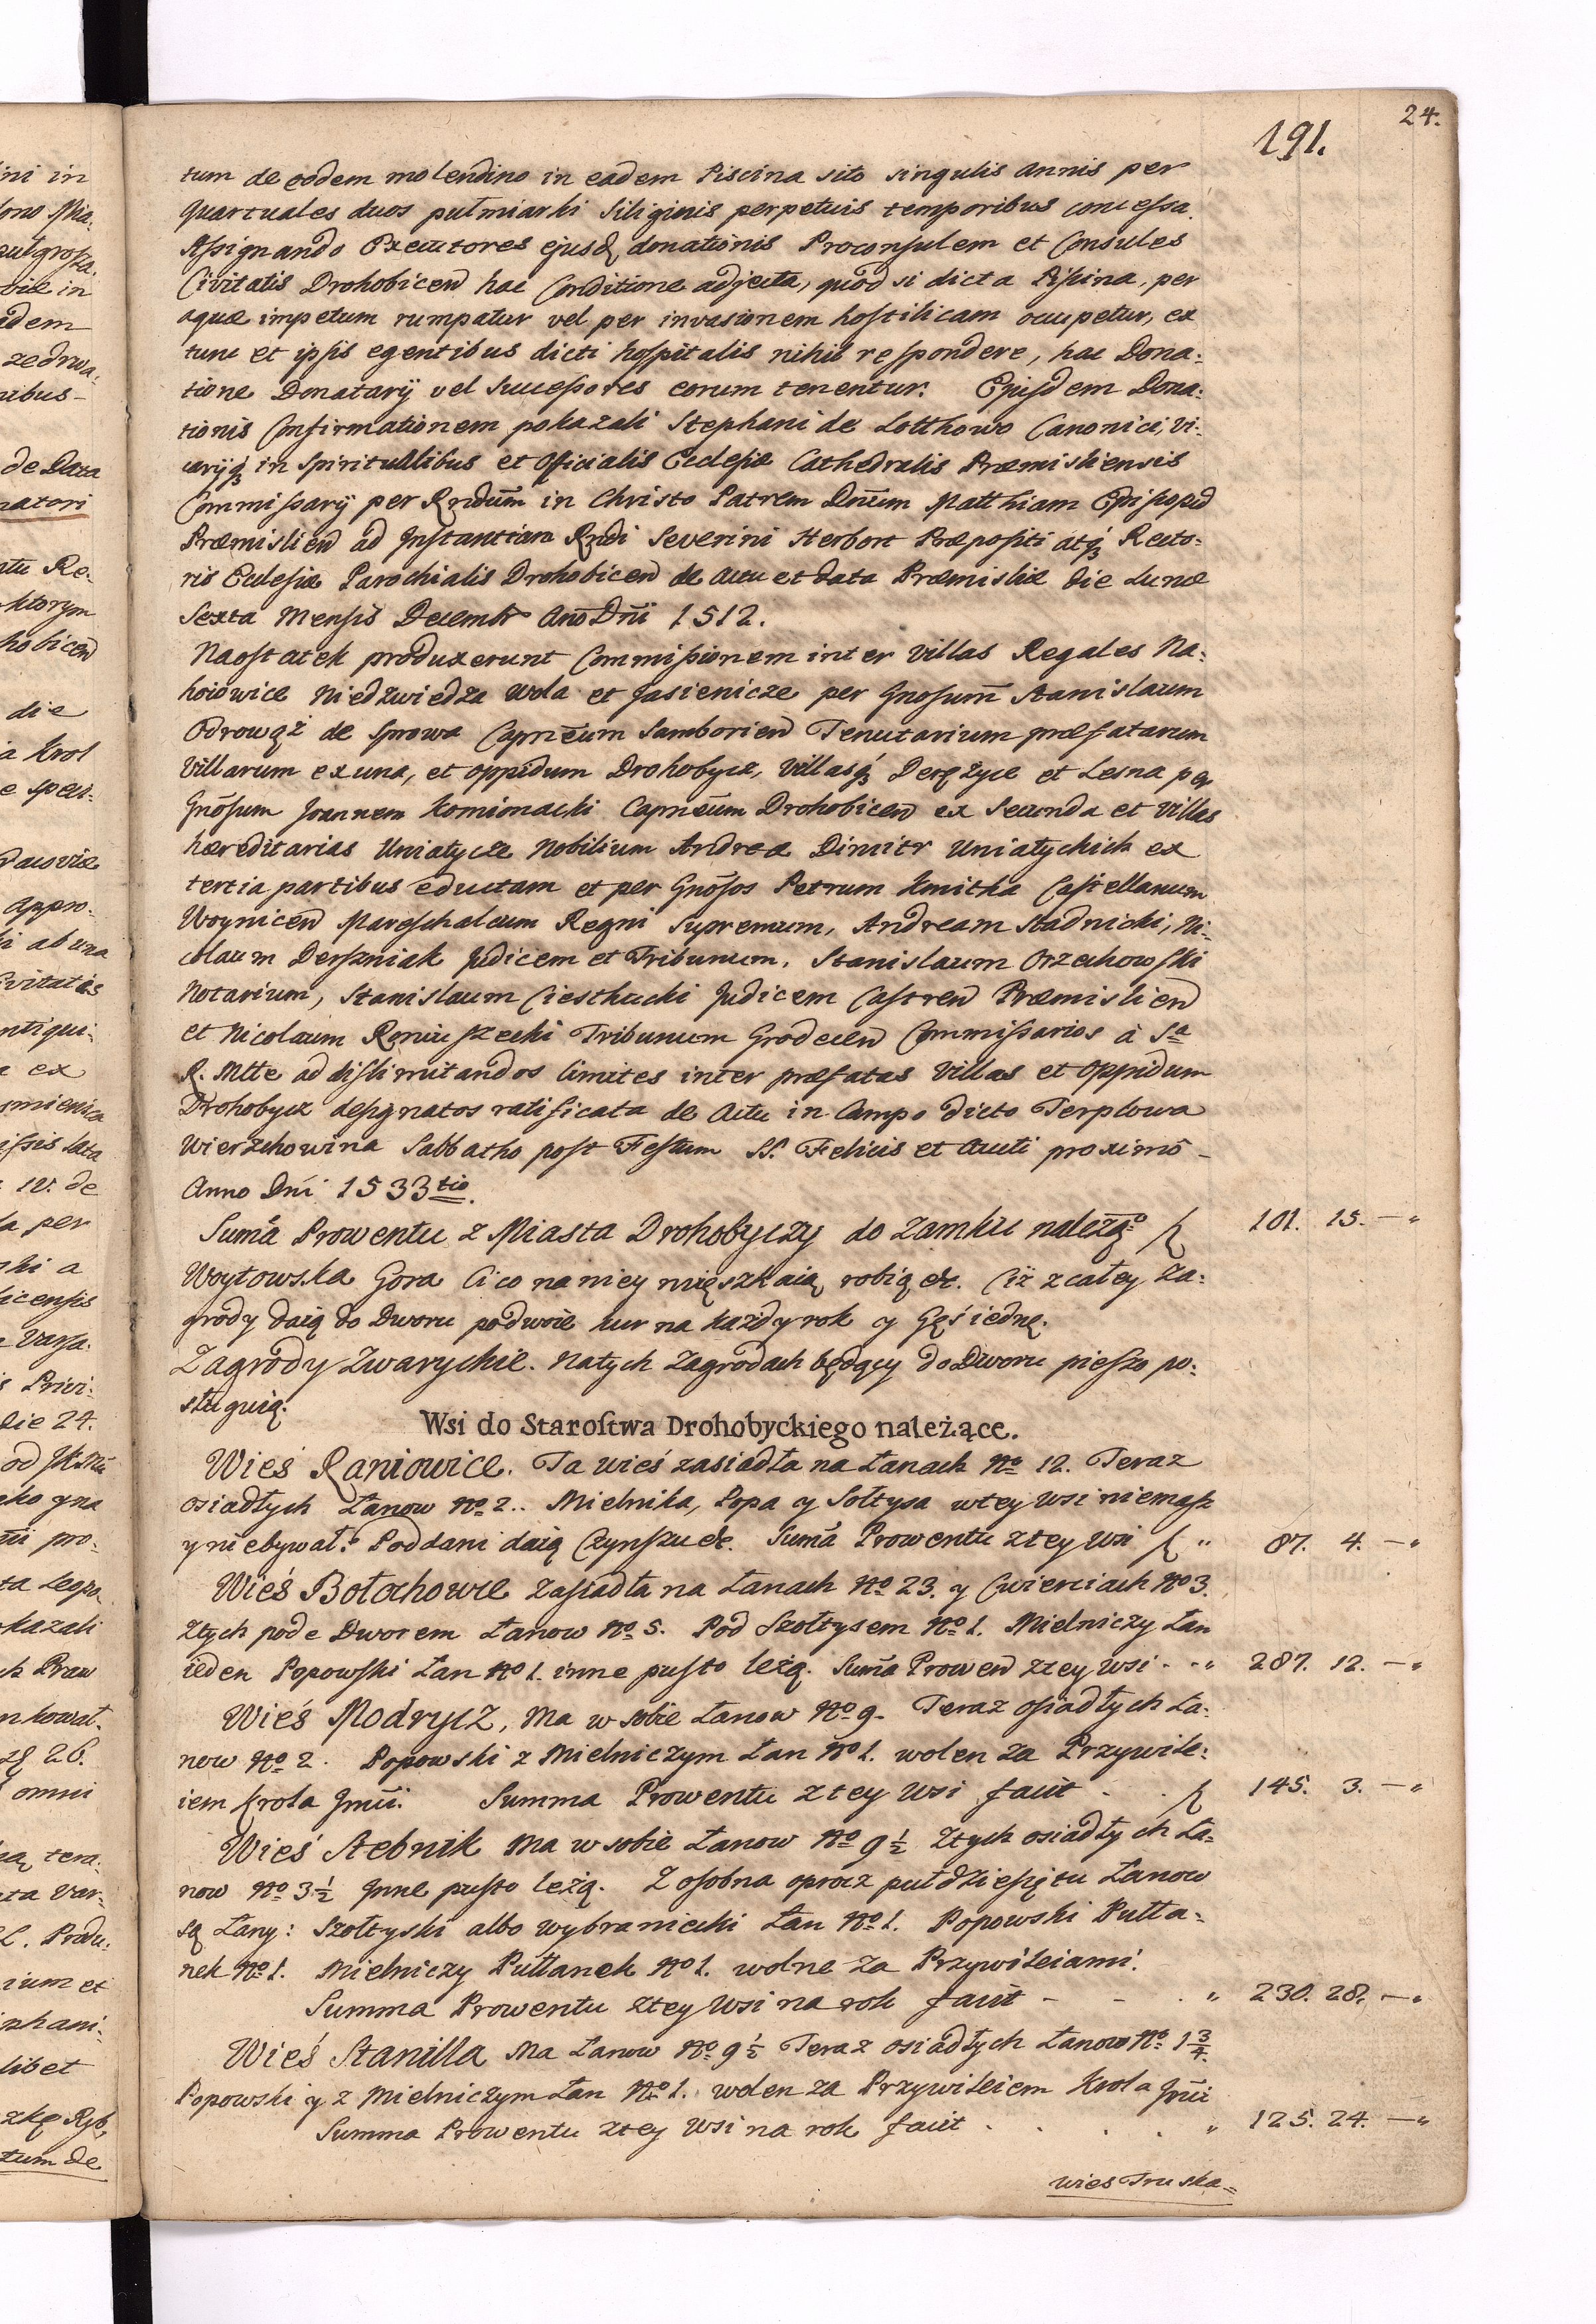 24.
191.
tum de eodem molendino in eadem Piscina sito singulis annis per
quartuales duos pułmiarki Siliginis perpetuis temporibus concessa.
Assignando Executores ejusd donationis Proconsulem et Consules
Civitatis Drohobicen hac Conditione adjecta, quod si dicta Pissina, per
aquæ impetum rumpatur vel per invasionem hostilicam occupetur, ex
tunc et ipsis egentibus dicti hospitalis nihil respondere, hac Dona:
tione Donatarÿ vel Successores eorum tenentur. Ejusdem Dona:
tionis Confirmationem pokazali Stephani de Lotthowo Canonici, Vi:
carÿq in Spiritualibus et Officialis Ecclesiæ Cathedralis Præmisliensis
Commissarÿ per Rndum in Christo Patrem Dnum Matthiam Episcopd
Præmislien ad Instantiam Rndi Severini Herbort Præpositi atq Recto:
ris Ecclesiæ Parochialis Drohobicen de Actu et data Præmisliæ die Lunæ
Sexta Mensis Decembr Ano Dni 1512.
Naostatek produxerunt Commissionem inter Villas Regales Na:
hoiowice Niedzwiedza Wola et Jasienicze per Gnosum Stanislaum
Odrowąż de Sprowa Capneum Samborien Tenutarium præfatarum
Villarum ex una, et oppidum Drohobycz, Villasq Derężyce et Lesna per
Gnosum Joannem Komionacki Capneum Drohobicen ex Secunda et Villas
hæreditarias Uniatycze Nobilium Andreæ Dimitr Uniatychich ex
tertia partibus eductam et per Gnosos Petrum Kmitha Castellanum
Woynicen Mareschalcum Regni Supremum, Andream Stadnicki, Ni:
colaum Derszniak Judicem et Tribunum, Stanislaum Orzechowski
Notarium, Stanislaum Ciesthucki Judicem Castren Præmislien
et Nicolaum Roniuszecki Tribunum Grodecen Commissarios à Sa
R. Mtte ad dislimitandos limites inter præfatas Villas et Oppidum
Drohobycz designatos ratificata de Actu in Campo dicto Terplowa
Wierzchowina Sabbatho post Festum SS. Felicis et Aucti proximô
Anno Dni 1533tio.
Suma Prowentu z Miasta Drohobyczy do Zamku należąo 101. 15. —"
Woytowska Gora Ci co na niey mięszkaią robią etc. Ciż z całey Za:
grody daią do Dworu podwoie kur na każdy rok y Gęś iednę.
Zagrody Zwarychie. Na tych Zagrodach będący do Dworu pieszo po:
sługuią.
Wsi do Starostwa Drohobyckiego należące.
Wieś Raniowice. Ta wieś zasiadła na Łanach No 12. Teraz
osiadłych Łanow No 2.. Mielnika, Popa y Sołtysa w tey Wsi niemasz
y nie bywał. Poddani daią Czynszu etc. Suma Prowentu z tey Wsi " 87. 4. —"
Wieś Bołochowce Zasiadła na Łanach No 23. y Cwierciach No 3.
Z tych pode Dworem Łanow No 5. Pod Szołtysem No 1. Mielniczy Łan
ieden Popowski Łan No 1. inne pusto leżą. Suma Prowen z tey Wsi " 287. 12. —"
Wieś Modrycz, Ma w sobie Łanow No 9. Teraz osiadłych Ła:
now No 2. Popowski z Mielniczym Łan No 1. wolen za Przywile:
iem Krola Jmci. Summa Prowentu z tey Wsi facit 145. 3. —"
Wieś Stebnik Ma w sobie Łanow No 9½ Z tych osiadłych Ła:
now No 3½ Inne pusto leżą. Z osobna oprocz pułdziesiętu Łanow
są Łany: Szołtyski albo wybraniecki Łan No 1. Popowski Pułła:
nek No 1. Mielniczy Pułłanek No 1. wolne za Przywileiami.
Summa Prowentu z tey Wsi na rok facit - - . " 230. 28. —"
Wieś Stanilla Ma Łanow No 9½ Teraz osiadłych Łanow No 1¾.
Popowski y z Mielniczym Łan No 1. wolen za Przywileiem Krola Jmci
Summa Prowentu z tey Wsi na rok facit . . . . " 125. 24. —"
wies Truska=